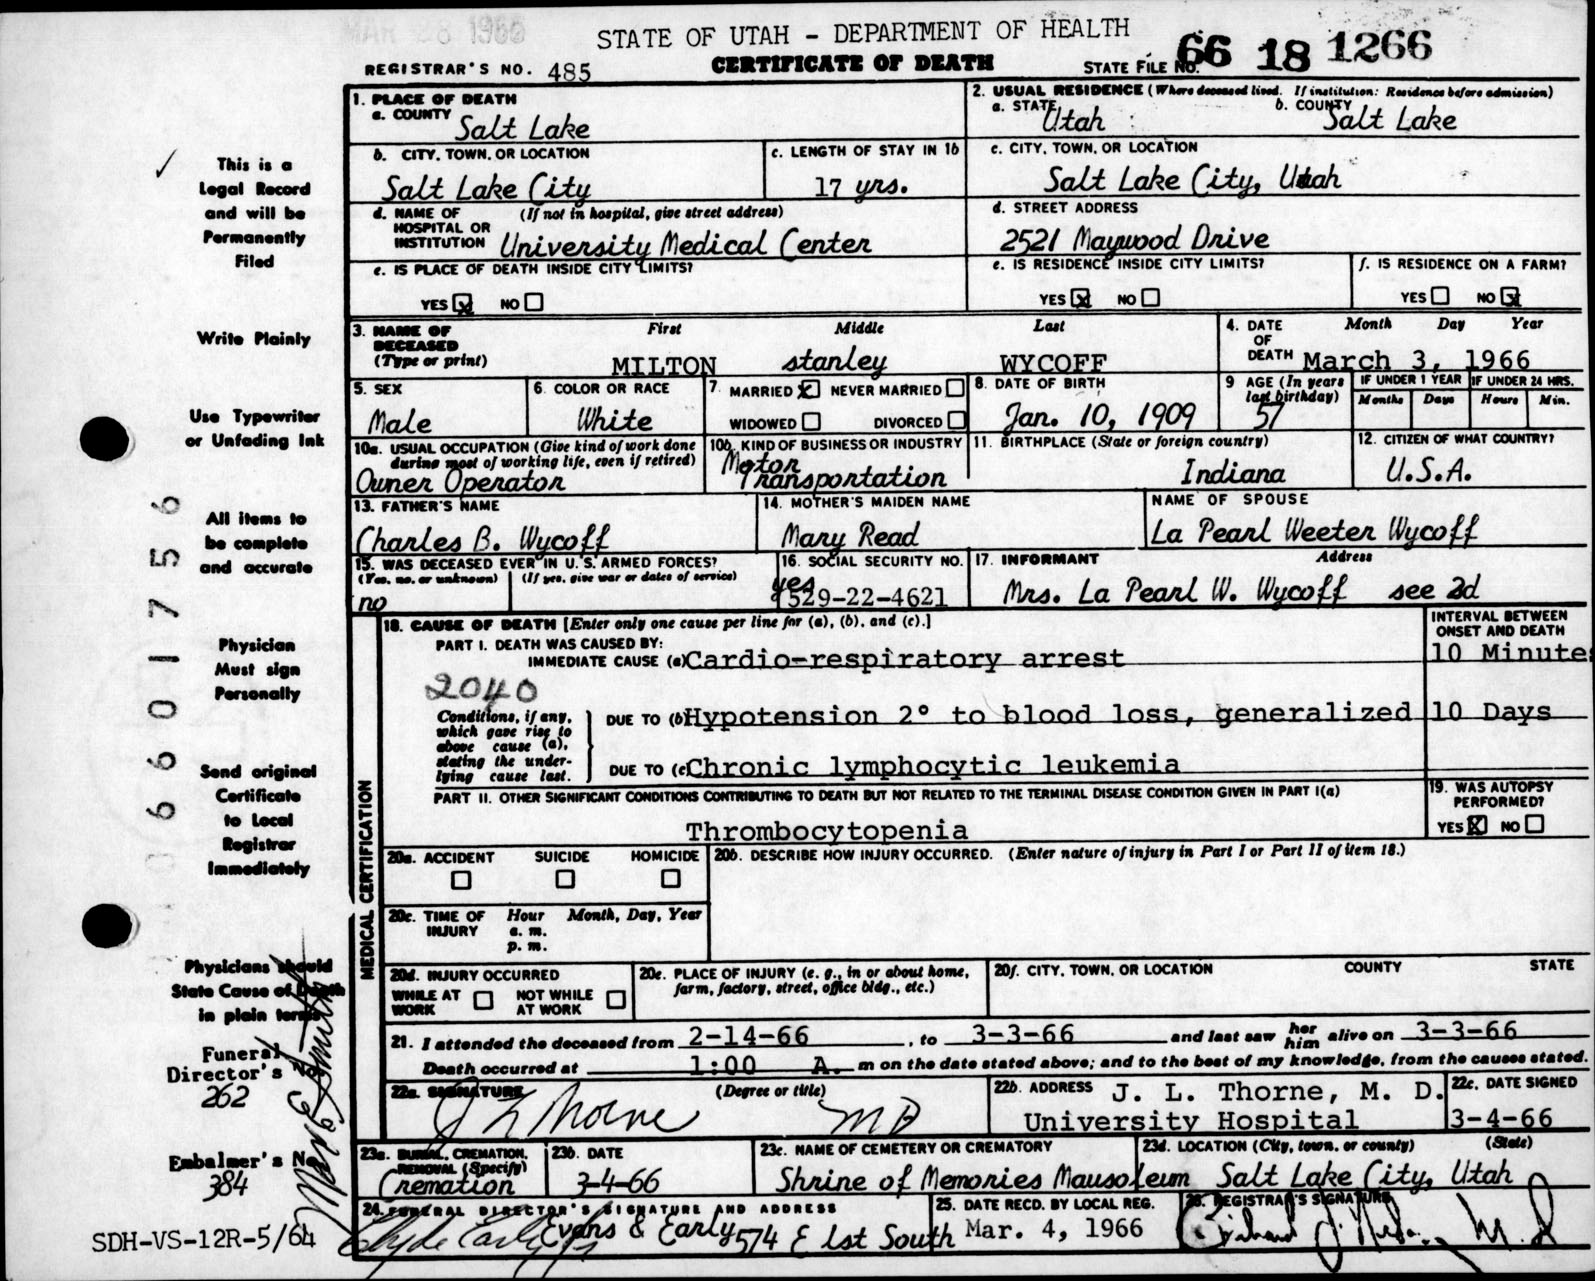 MAR 28 1966
STATE OF UTAH - DEPARTMENT OF HEALTH
REGISTRAR'S NO. 485
CERTIFICATE OF DEATH
STATE FILE NO. 66 18 1266
1. PLACE OF DEATH
a. COUNTY Salt Lake
2. USUAL RESIDENCE (Where deceased lived. If institution: Residence before admission)
a. STATE Utah b. COUNTY Salt Lake
b. CITY, TOWN, OR LOCATION Salt Lake City
c. LENGTH OF STAY IN 1b 17 yrs.
c. CITY, TOWN, OR LOCATION Salt Lake City, Utah
d. NAME OF HOSPITAL OR INSTITUTION (If not in hospital, give street address) University Medical Center
d. STREET ADDRESS 2521 Maywood Drive
e. IS PLACE OF DEATH INSIDE CITY LIMITS?
YES X NO
e. IS RESIDENCE INSIDE CITY LIMITS?
YES X NO
f. IS RESIDENCE ON A FARM?
YES NO X
3. NAME OF DECEASED (Type or print)
First Middle Last
MILTON stanley WYCOFF
4. DATE OF DEATH Month Day Year
March 3, 1966
5. SEX Male
6. COLOR OR RACE White
7. MARRIED X NEVER MARRIED
WIDOWED DIVORCED
8. DATE OF BIRTH Jan. 10, 1909
9 AGE (In years last birthday) 57
IF UNDER 1 YEAR Months Days
IF UNDER 24 HRS. Hours Min.
10a. USUAL OCCUPATION (Give kind of work done during most of working life, even if retired)
Owner Operator
10b. KIND OF BUSINESS OR INDUSTRY
Motor Transportation
11. BIRTHPLACE (State or foreign country)
Indiana
12. CITIZEN OF WHAT COUNTRY?
U.S.A.
13. FATHER'S NAME
Charles B. Wycoff
14. MOTHER'S MAIDEN NAME
Mary Read
NAME OF SPOUSE
La Pearl Weeter Wycoff
15. WAS DECEASED EVER IN U.S. ARMED FORCES?
(Yes, no, or unknown) (If yes, give war or dates of service)
no
16. SOCIAL SECURITY NO.
yes
529-22-4621
17. INFORMANT Address
Mrs. La Pearl W. Wycoff see 2d
MEDICAL CERTIFICATION
18. CAUSE OF DEATH [Enter only one cause per line for (a), (b), and (c).]
INTERVAL BETWEEN ONSET AND DEATH
PART I. DEATH WAS CAUSED BY:
IMMEDIATE CAUSE (a) Cardio-respiratory arrest 10 Minutes
2040
Conditions, if any, which gave rise to above cause (a), stating the underlying cause last.
DUE TO (b) Hypotension 2° to blood loss, generalized 10 Days
DUE TO (c) Chronic lymphocytic leukemia
PART II. OTHER SIGNIFICANT CONDITIONS CONTRIBUTING TO DEATH BUT NOT RELATED TO THE TERMINAL DISEASE CONDITION GIVEN IN PART I(a)
Thrombocytopenia
19. WAS AUTOPSY PERFORMED?
YES X NO
20a. ACCIDENT SUICIDE HOMICIDE
20b. DESCRIBE HOW INJURY OCCURRED. (Enter nature of injury in Part I or Part II of item 18.)
20c. TIME OF INJURY Hour Month, Day, Year
a. m.
p. m.
20d. INJURY OCCURRED
WHILE AT WORK NOT WHILE AT WORK
20e. PLACE OF INJURY (e. g., in or about home, farm, factory, street, office bldg., etc.)
20f. CITY, TOWN, OR LOCATION COUNTY STATE
21. I attended the deceased from 2-14-66, to 3-3-66 and last saw her him alive on 3-3-66
Death occurred at 1:00 A. m on the date stated above; and to the best of my knowledge, from the causes stated.
22a. SIGNATURE (Degree or title)
J L Thorne MD
22b. ADDRESS J. L. Thorne, M. D.
University Hospital
22c. DATE SIGNED
3-4-66
23a. BURIAL, CREMATION, REMOVAL (Specify)
Cremation
23b. DATE
3-4-66
23c. NAME OF CEMETERY OR CREMATORY
Shrine of Memories Mausoleum
23d. LOCATION (City, town, or county) (State)
Salt Lake City, Utah
24. FUNERAL DIRECTOR'S SIGNATURE AND ADDRESS
Evans & Early 574 E 1st South
25. DATE RECD. BY LOCAL REG.
Mar. 4, 1966
26. REGISTRAR'S SIGNATURE
M.D
This is a
Legal Record
and will be
Permanently
Filed
Write Plainly
Use Typewriter
or Unfading Ink
All items to
be complete
and accurate
Physician
Must sign
Personally
Send original
Certificate
to Local
Registrar
Immediately
Physicians should
State Cause of Death
in plain terms
Funeral
Director's No
262
Embalmer's No
384
6601756
SDH-VS-12R-5/64